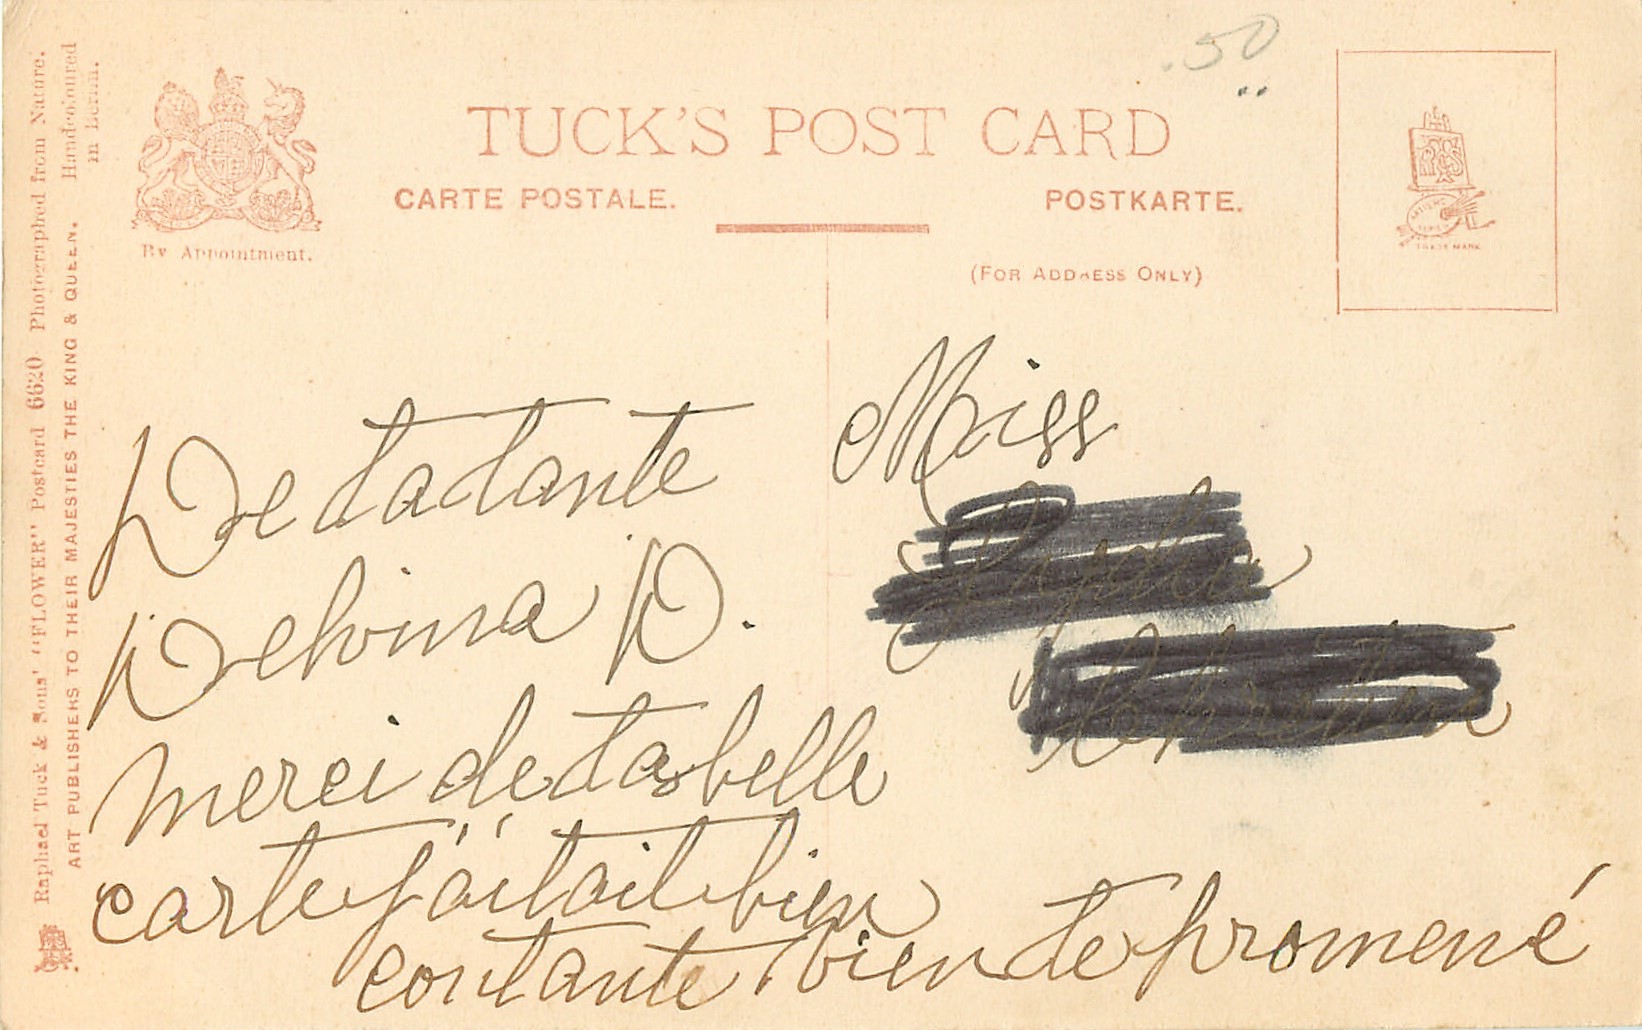 .50
TUCK'S POST CARD
CARTE POSTALE.
POSTKARTE.
(FOR ADDRESS ONLY)
By Appointment.
TRADE MARK
Raphael Tuck & Sons' "FLOWER" Postcard 6620 Photographed from Nature. Handcoloured
in Berlin.
ART PUBLISHERS TO THEIR MAJESTIES THE KING & QUEEN.
Miss
De ta tante
Delvina D.
merci de ta belle
carte j'aitait bien
contante vien te promené